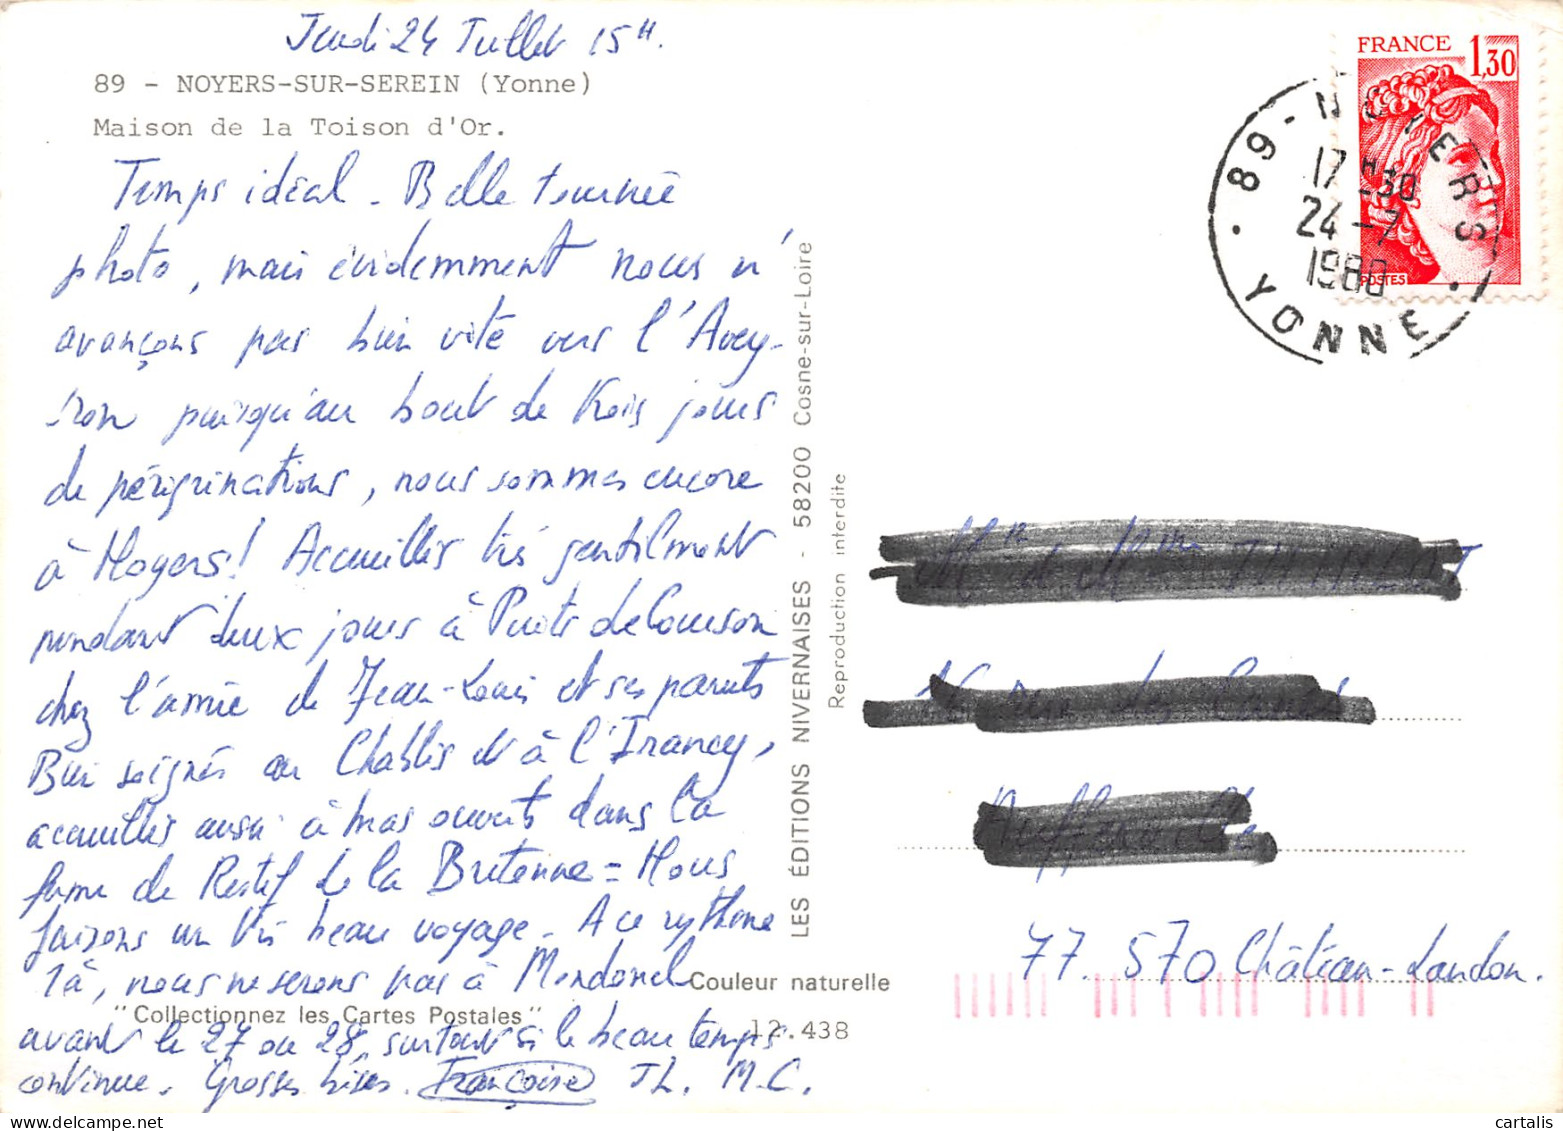 Jeudi 24 Juillet 15H.
89 - NOYERS-SUR-SEREIN (Yonne)
Maison de la Toison d'Or.
Temps idéal. Belle tournée
photo, mais évidemment nous n'
avançons pas bien vite vers l'Avey-
ron puisqu'au bout de trois jours
de pérégrinations, nous sommes encore
à Noyers! Accueillis très gentilment
pendant deux jours à de Courson
chez l'amie de Jean-Louis et ses parents
Bien soignés au Chablis et à l'Irancy,
accueillis aussi à bras ouverts dans la
ferme de Restif de la Bretonne = Nous
faisons un très beau voyage. A ce rythme
là, nous ne serons pas à Mondonel
avant le 27 ou 28, surtout si le beau temps
continue. Grosses bises. Françoise JL. M.C.
"Collectionnez les Cartes Postales"
Couleur naturelle
12.438
LES ÉDITIONS NIVERNAISES - 58200 Cosne-sur-Loire
Reproduction interdite
FRANCE 1,30
POSTES
89 - NOYERS
17H30
24-7
1980
YONNE
77.570 Château-Landon.
cartalis